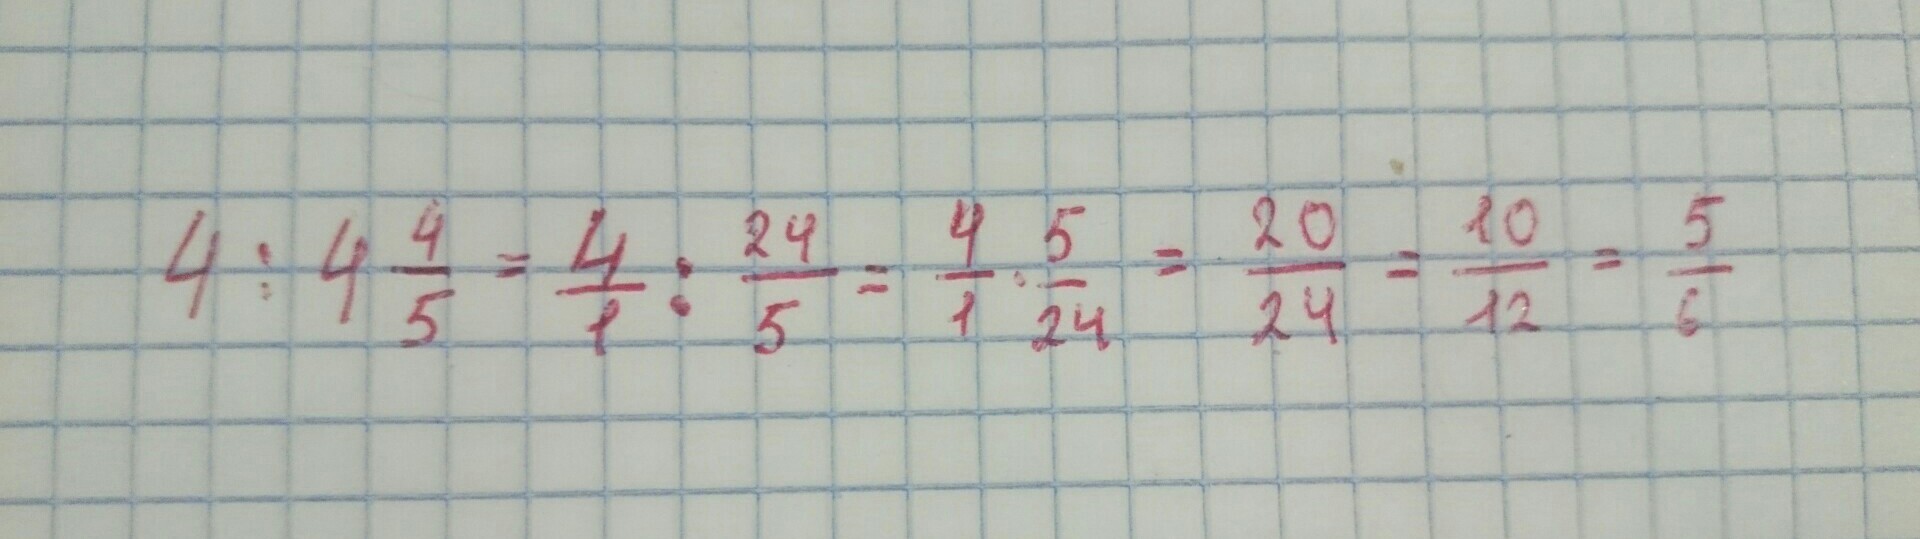 4 : 4 4/5 = 4/1 : 24/5 = 4/1 · 5/24 = 20/24 = 10/12 = 5/6